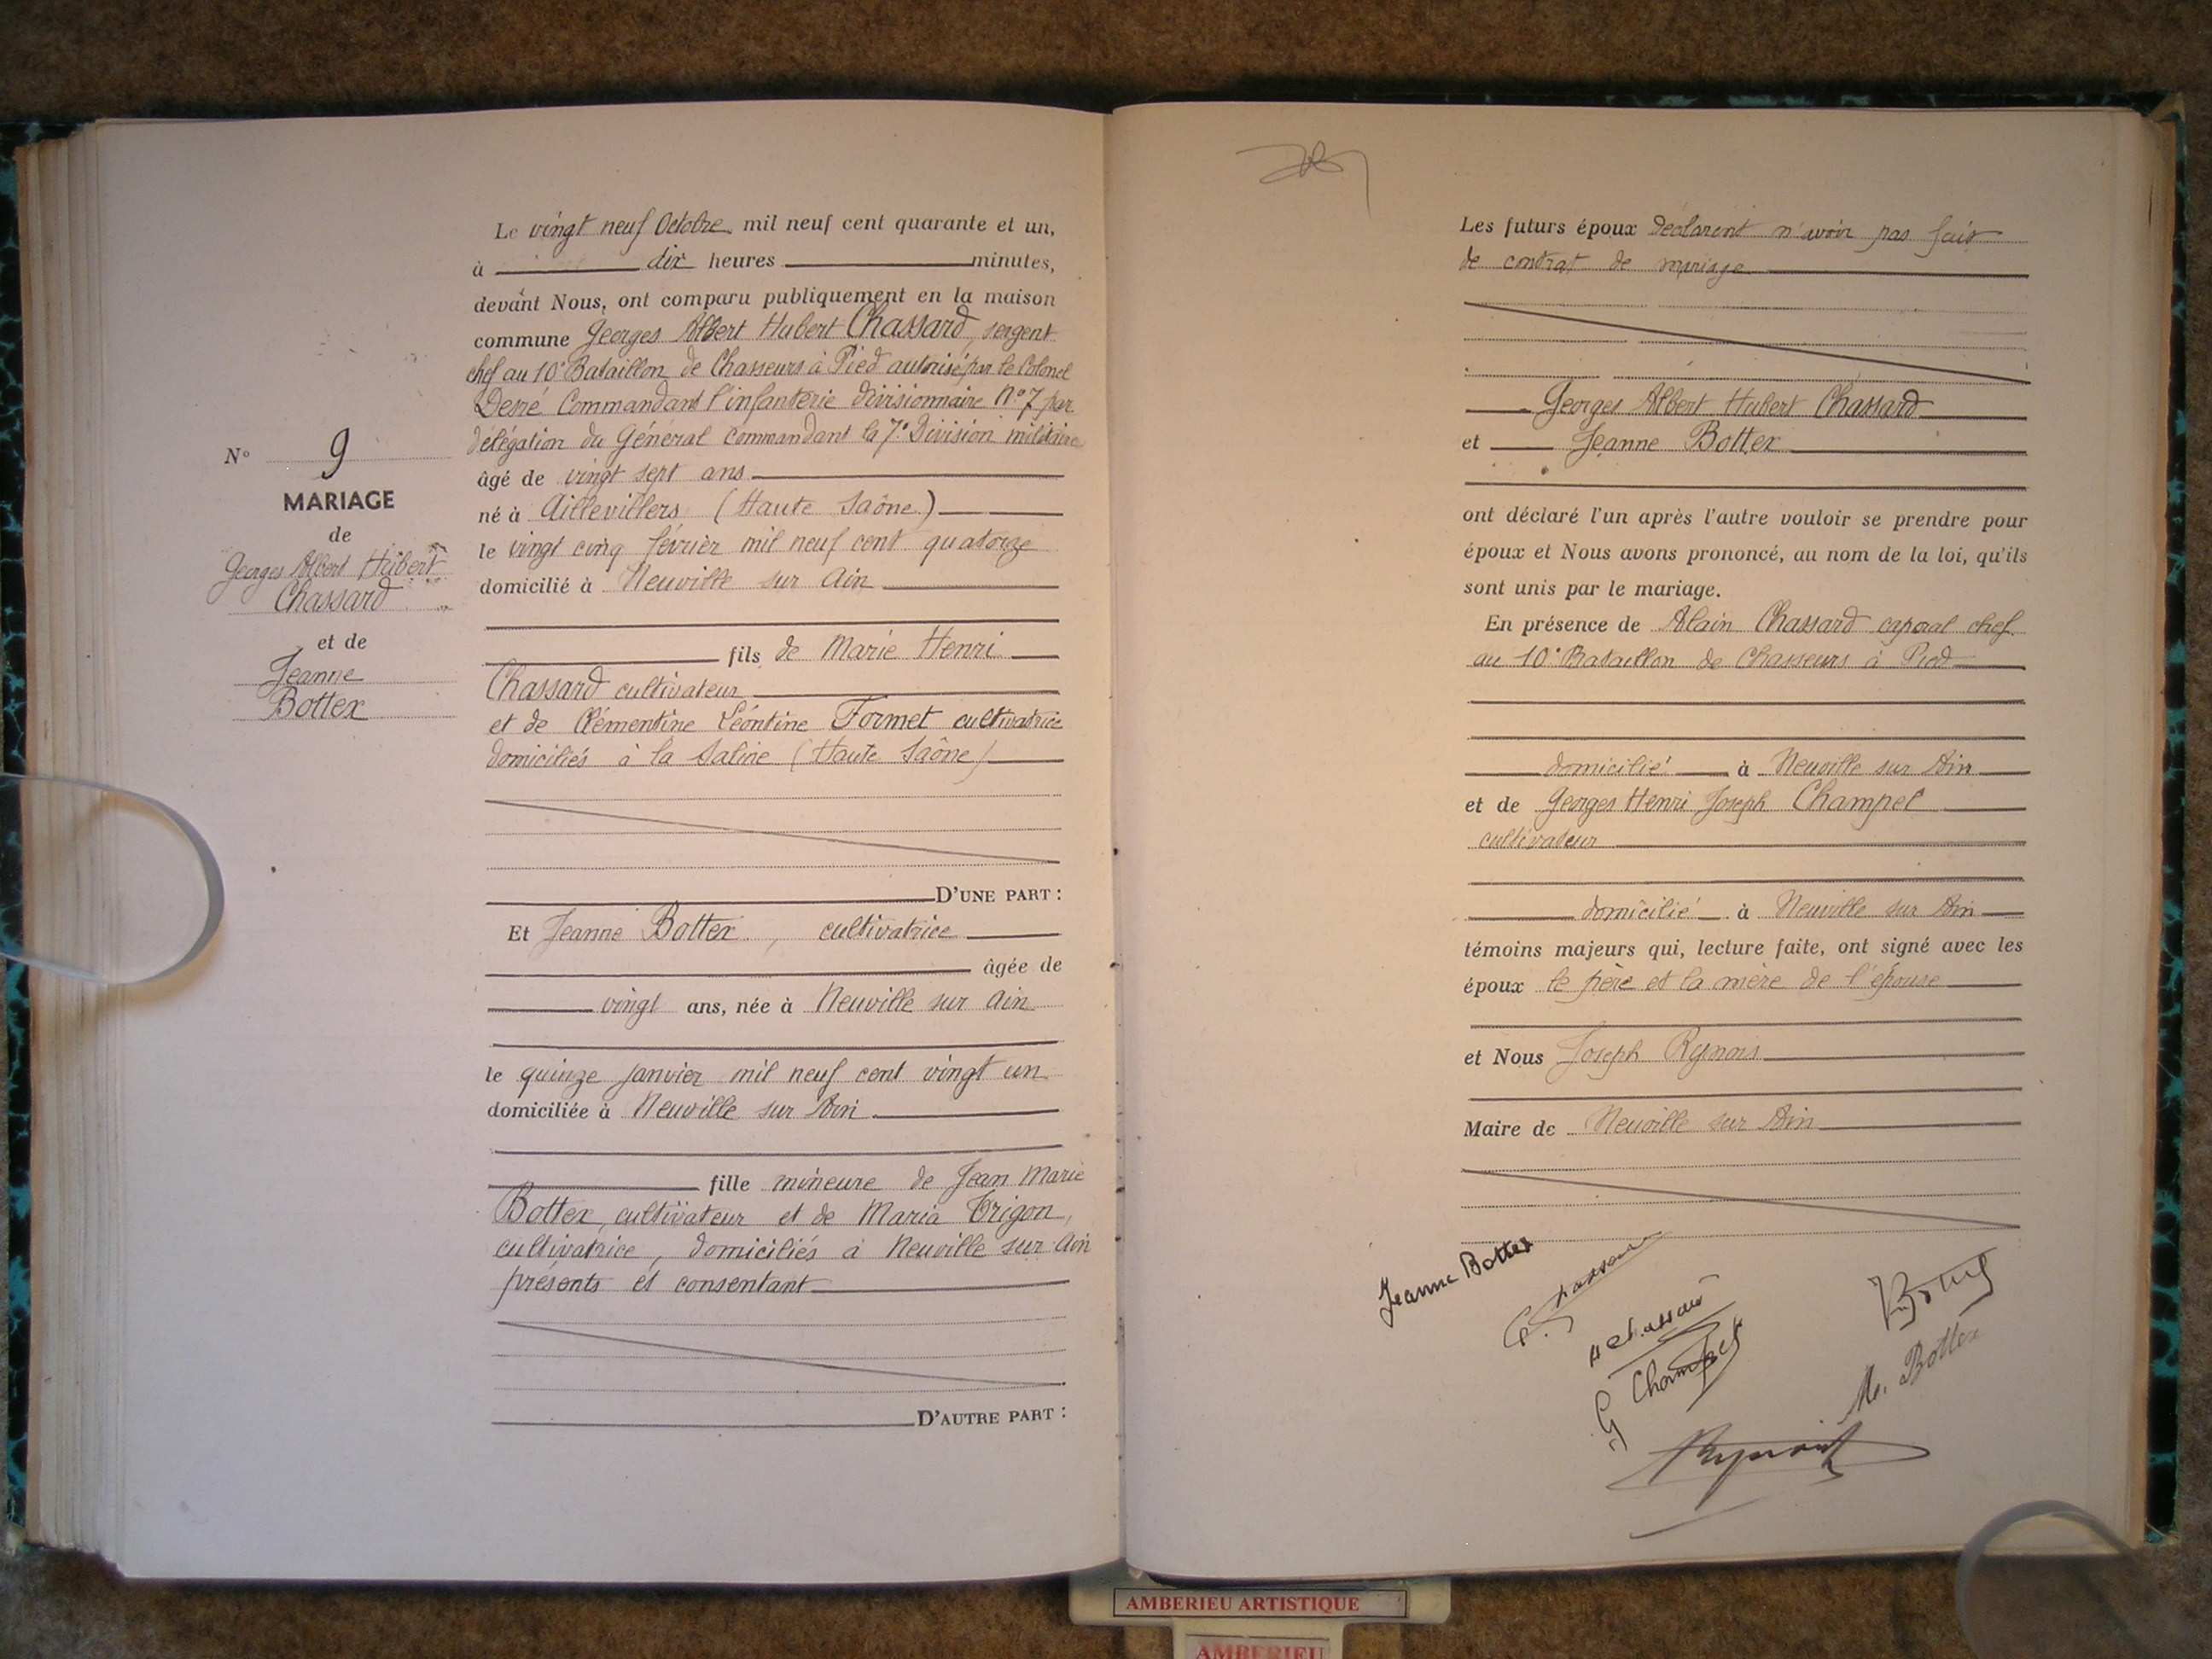 N° 9
MARIAGE
de
Georges Albert Hubert
Chassard
et de
Jeanne
Bottex
Le vingt neuf Octobre mil neuf cent quarante et un,
à dix heures minutes,
devant Nous, ont comparu publiquement en la maison
commune Georges Albert Hubert Chassard, sergent
chef au 10e Bataillon de Chasseurs à Pied autorisé par le Colonel
Commandant l'infanterie divisionnaire N°7 par
délégation du Général commandant la 7e Division militaire
âgé de vingt sept ans
né à Aillevillers (Haute Saône)
le vingt cinq février mil neuf cent quatorze
domicilié à Neuville sur Ain
fils de Marie Henri
Chassard cultivateur
et de Clémentine Léontine Formet cultivatrice
domiciliés à la (Haute Saône)
D'UNE PART :
Et Jeanne Bottex, cultivatrice
âgée de
vingt ans, née à Neuville sur Ain
le quinze janvier mil neuf cent vingt un
domiciliée à Neuville sur Ain
fille mineure de Jean Marie
Bottex, cultivateur et de Maria Trigon,
cultivatrice, domiciliés à Neuville sur Ain
présents et consentant
D'AUTRE PART :
Les futurs époux déclarent n'avoir pas fait
de contrat de mariage
Georges Albert Hubert Chassard
et Jeanne Bottex
ont déclaré l'un après l'autre vouloir se prendre pour
époux et Nous avons prononcé, au nom de la loi, qu'ils
sont unis par le mariage.
En présence de Alain Chassard caporal chef
au 10e Bataillon de Chasseurs à Pied
domicilié à Neuville sur Ain
et de Georges Henri Joseph Champel
cultivateur
domicilié à Neuville sur Ain
témoins majeurs qui, lecture faite, ont signé avec les
époux le père et la mère de l'épouse
et Nous Joseph
Maire de Neuville sur Ain
Jeanne Bottex
G. Chassard
A Chassard
G Champel
M. Bottex
AMBERIEU ARTISTIQUE
AMBERIEU